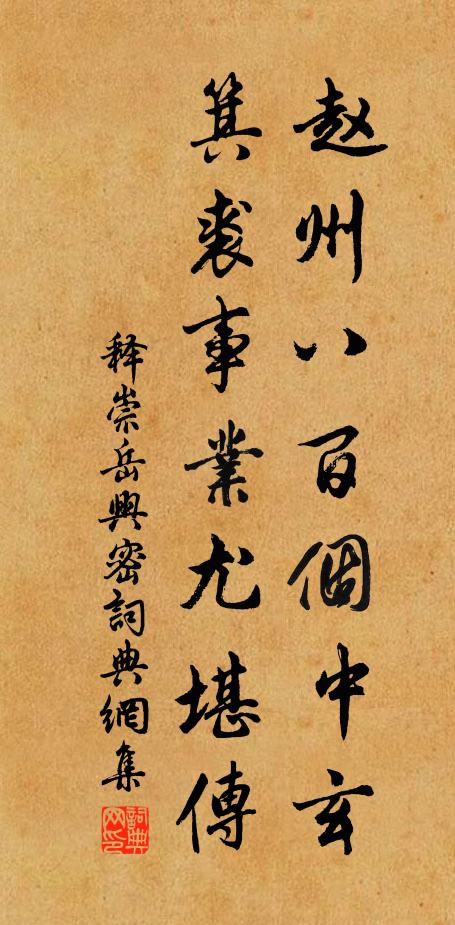 赵州八百個中玄
箕裘事業尤堪傳
释崇岳與密詞典網集
詞典网印